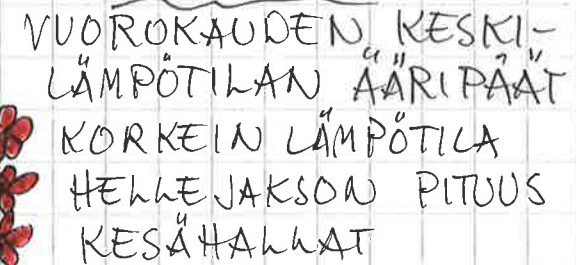 VUOROKAUDEN KESKI-
LÄMPÖTILAN ÄÄRIPÄÄT
KORKEIN LÄMPÖTILA
HELLEJAKSON PITUUS
KESÄHALLAT